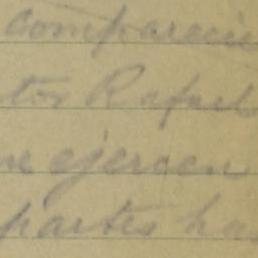 comparecie
tor Rafael
ue ejercen
partes ha